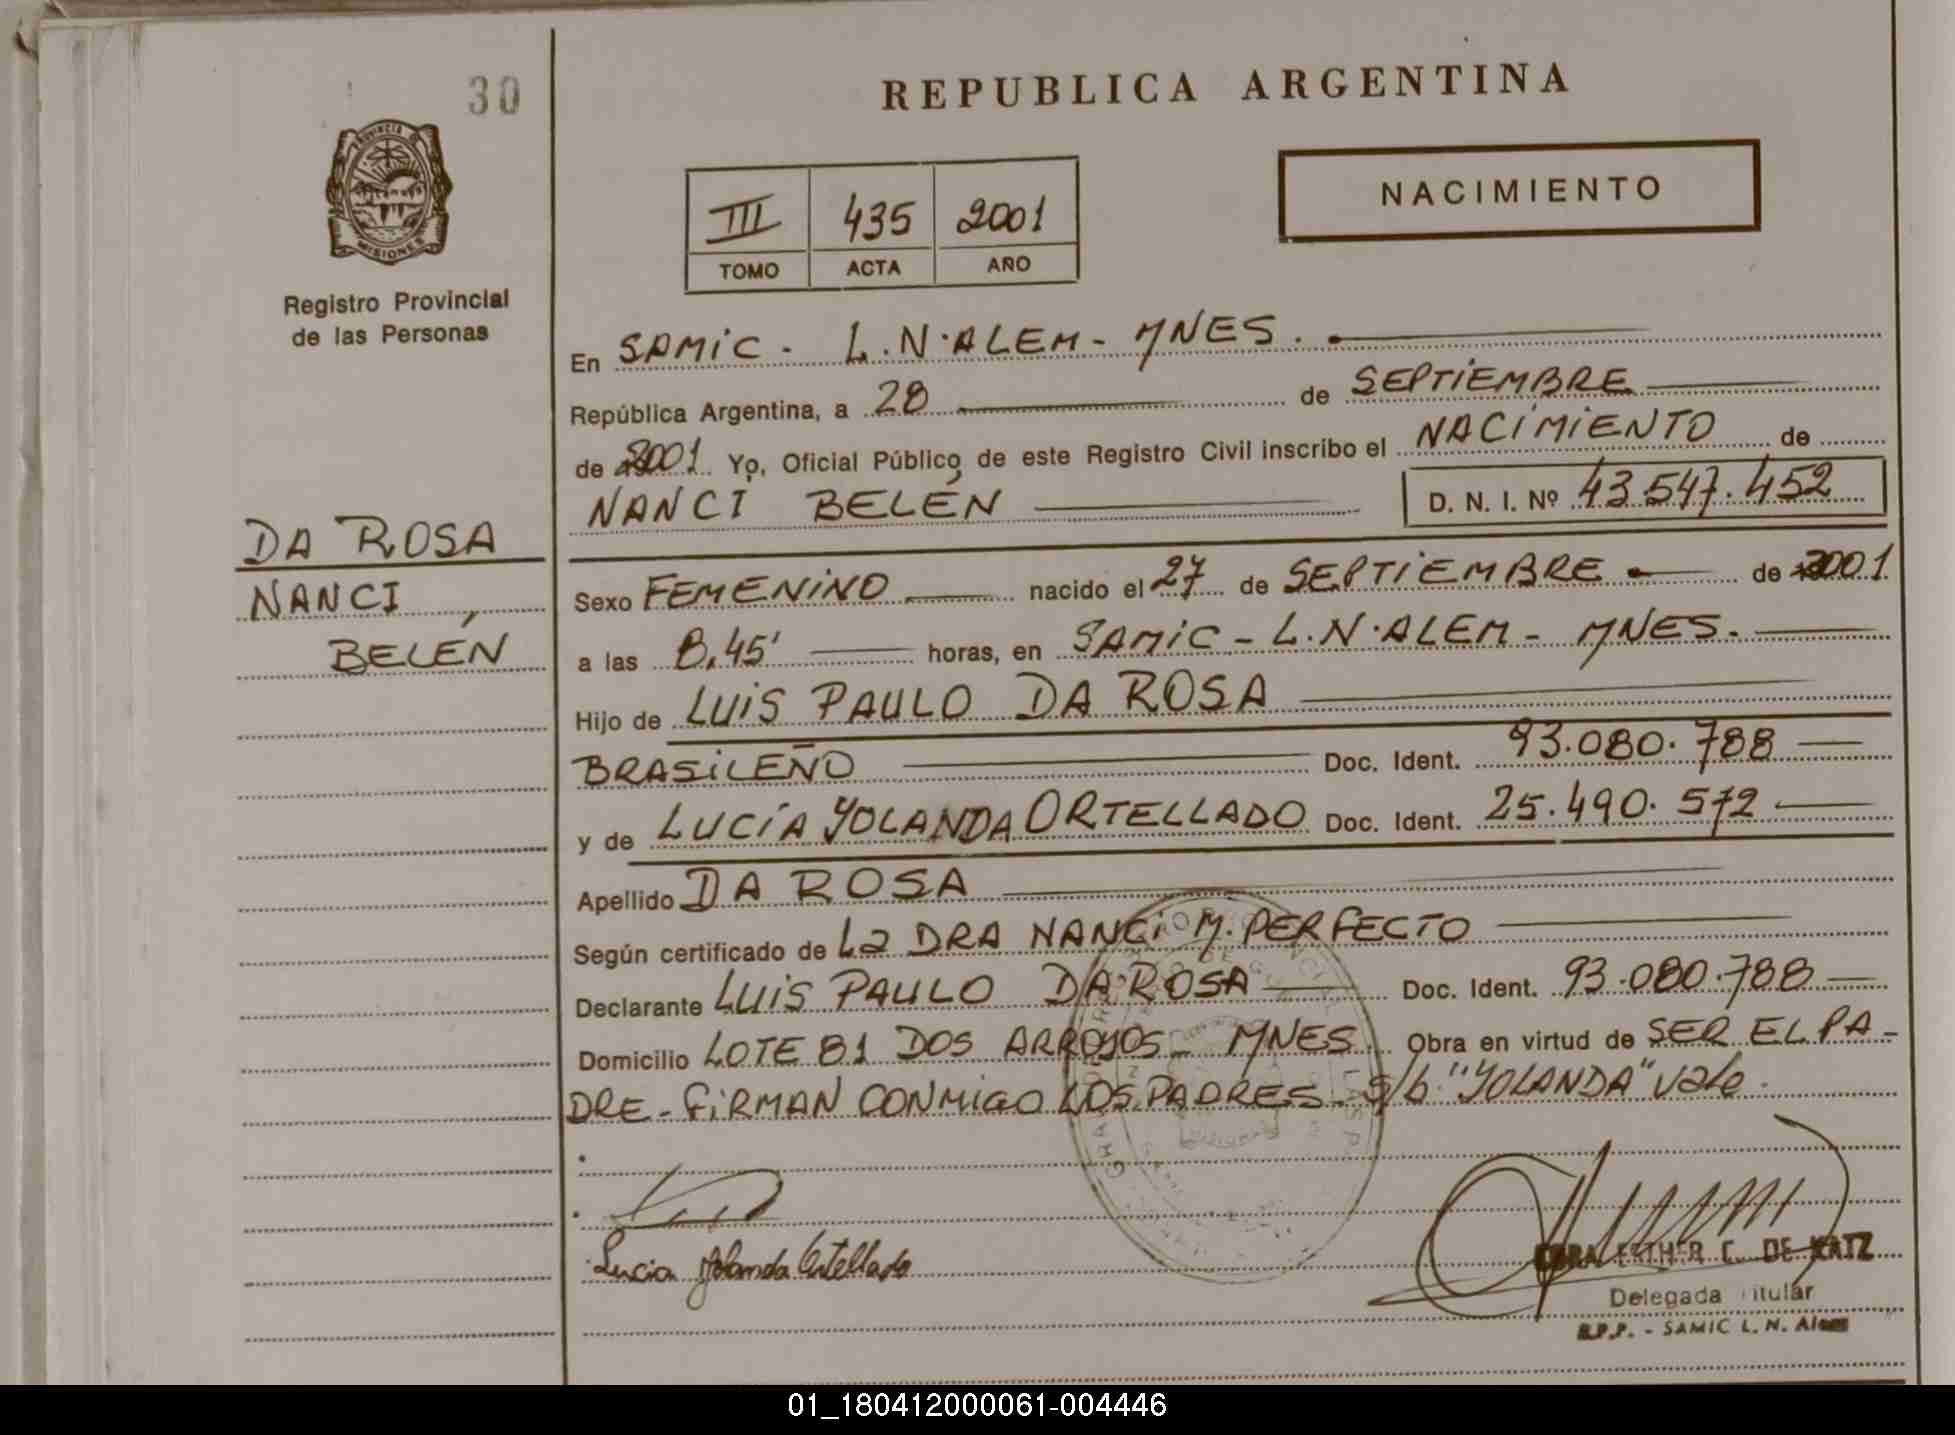 30
PROVINCIA DE
MISIONES
Registro Provincial
de las Personas
DA ROSA
NANCI
BELÉN
REPUBLICA ARGENTINA
III 435 2001
TOMO ACTA AÑO
NACIMIENTO
En SAMIC - L.N.ALEM - MNES.
República Argentina, a 28 de SEPTIEMBRE
de 2001 Yo, Oficial Público de este Registro Civil inscribo el NACIMIENTO de
NANCI BELÉN D. N. I. Nº 43.547.452
Sexo FEMENINO nacido el 27 de SEPTIEMBRE de 2001
a las 8,45' horas, en SAMIC - L.N.ALEM - MNES.
Hijo de LUIS PAULO DA ROSA
BRASILEÑO Doc. Ident. 93.080.788
y de LUCÍA YOLANDA ORTELLADO Doc. Ident. 25.490.572
Apellido DA ROSA
Según certificado de La DRA NANCI M. PERFECTO
Declarante LUIS PAULO DA ROSA Doc. Ident. 93.080.788
Domicilio LOTE 81 DOS ARROYOS - MNES. Obra en virtud de SER EL PA-
DRE - FIRMAN CONMIGO LOS PADRES - S/b "YOLANDA" vale.
Lucia Yolanda Ortellado
ESTHER C. DE KATZ
Delegada Titular
R.P.P. - SAMIC L. N. Alem
01_180412000061-004446